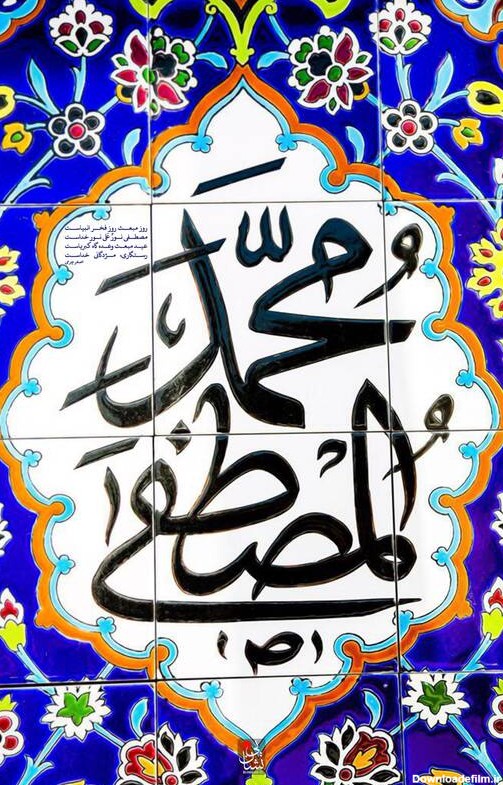 روز مبعث روز فخر انبیاست
مصطفی نورٌ علی نور خداست
عید مبعث وعده گاه کبریاست
رستگاری، مژدگانی خداست
محمد
المصطفی
(ص)
Downloadefilm.ir